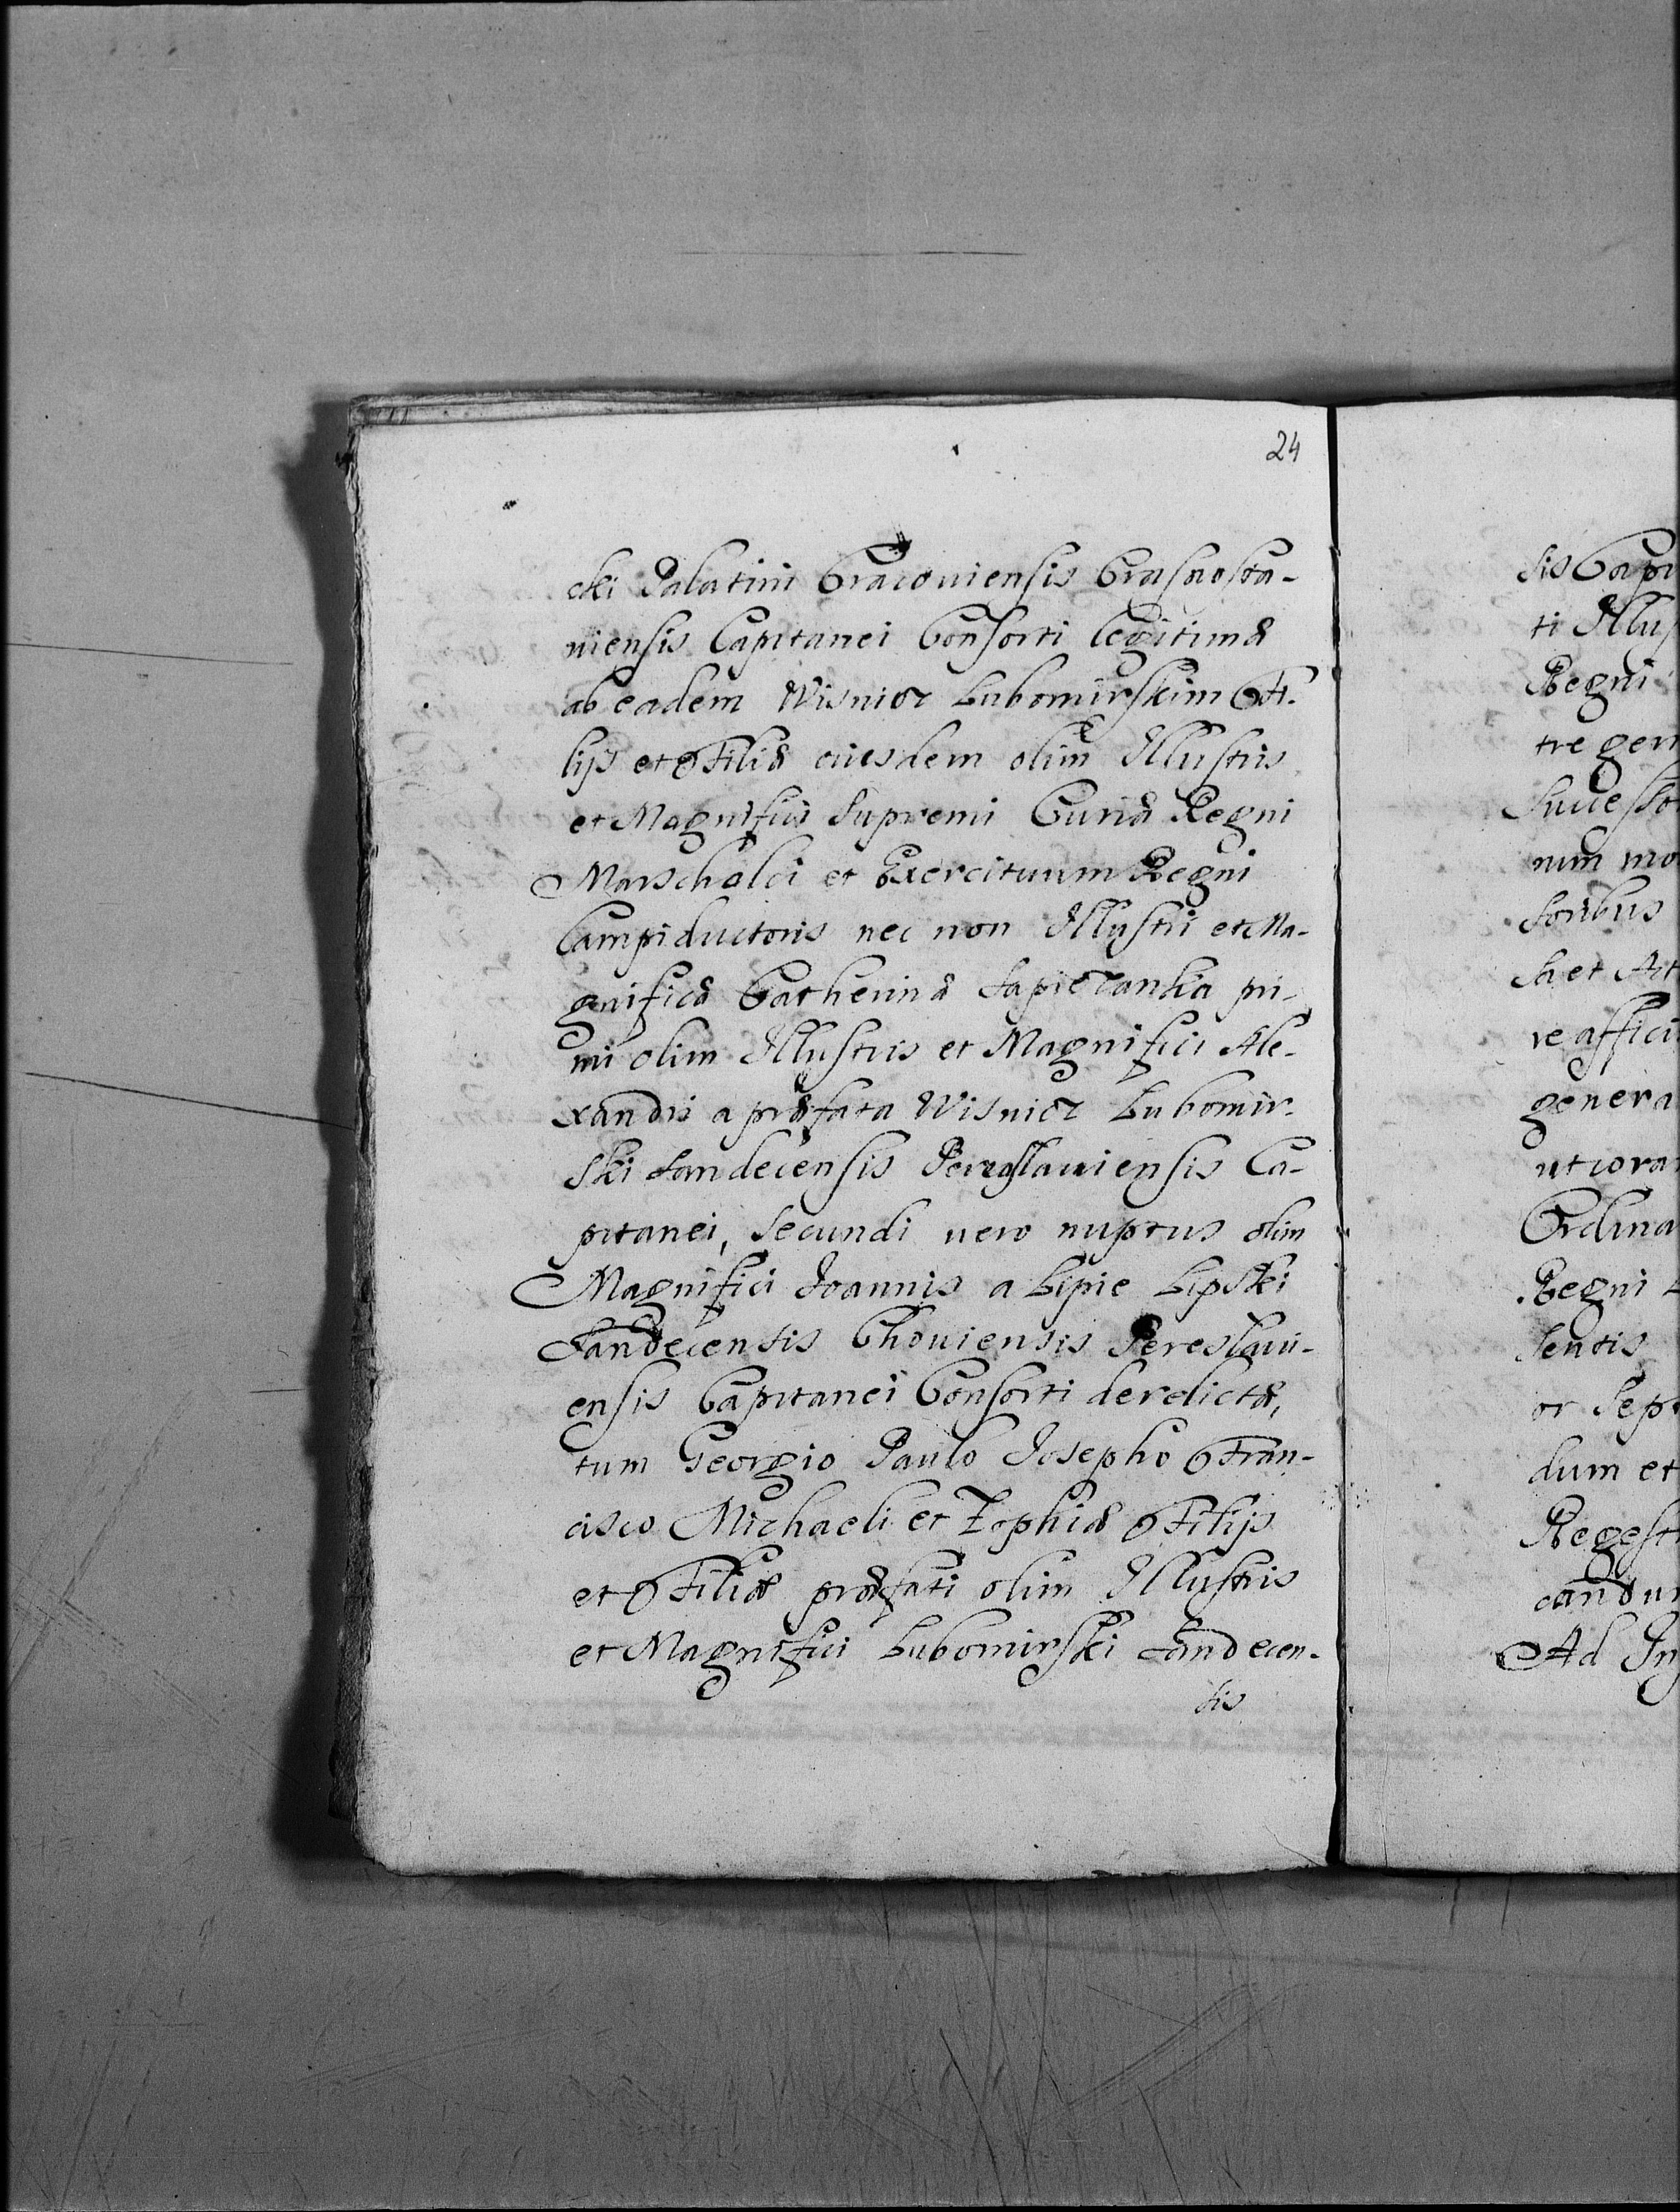 24
cki Palatini Cracouiensis Crasnosta-
uiensis Capitanei Consorti legitimæ
ab eadem Wisnicz Lubomirskim Fi-
lijs et Filiæ eiusdem olim Illustris
et Magnifici Supremi Curiæ Regni
Marschalci et Exercituum Regni
Campiductoris nec non Illustri et Ma-
gnificæ Catherinæ Sapiezanka pri-
mi olim Illustris et Magnifici Ale-
xandri a præfata Wisnicz Lubomir-
ski Sandecensis Pereaslauiensis Ca-
pitanei, Secundi uero nuptus olim
Magnifici Joannis a Lipie Lipski
Sandecensis Chouiensis Pereslaui-
ensis Capitanei Consorti derelictæ,
tum Georgio Paulo Josepho Fran-
cisco Michaeli et Zophiæ Filijs
et Filiæ præfati olim Illustris
et Magnifici Lubomirski Sandecen-
sis
sis Capi
ti Illus
Regni
tre gen
Successo
num mo
soribus
sa et Act
re affici
genera
ut cora
Ordina
Regni
sentis
or Sept
dum et
Regest
candum
Ad In